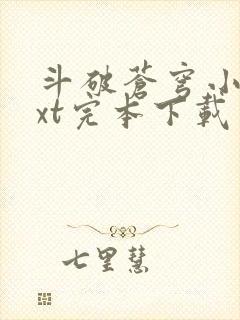 斗破蒼穹小
xt完本下載
七里慧